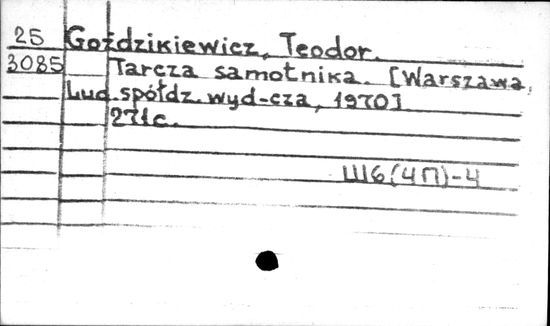 25 Goździkiewicz, Teodor.
3085 Tarcza samotnika. [Warszawa,
Lud. spółdz. wyd-cza, 1970]
271c.
Ш6(4П)-4